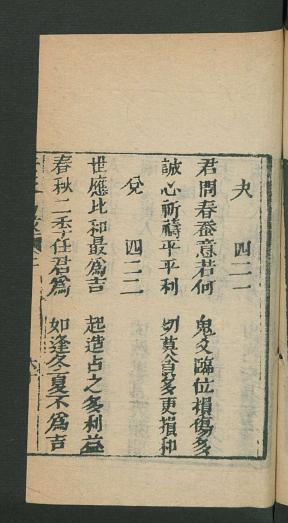 夬　四二一
君問春蚕意若何　鬼爻臨位損傷多
誠心祈禱平平利　切莫貪多更損和
兌　四二二
世應比和最爲吉　起造占之多利益
春秋二季任君爲　如逢冬夏不爲吉